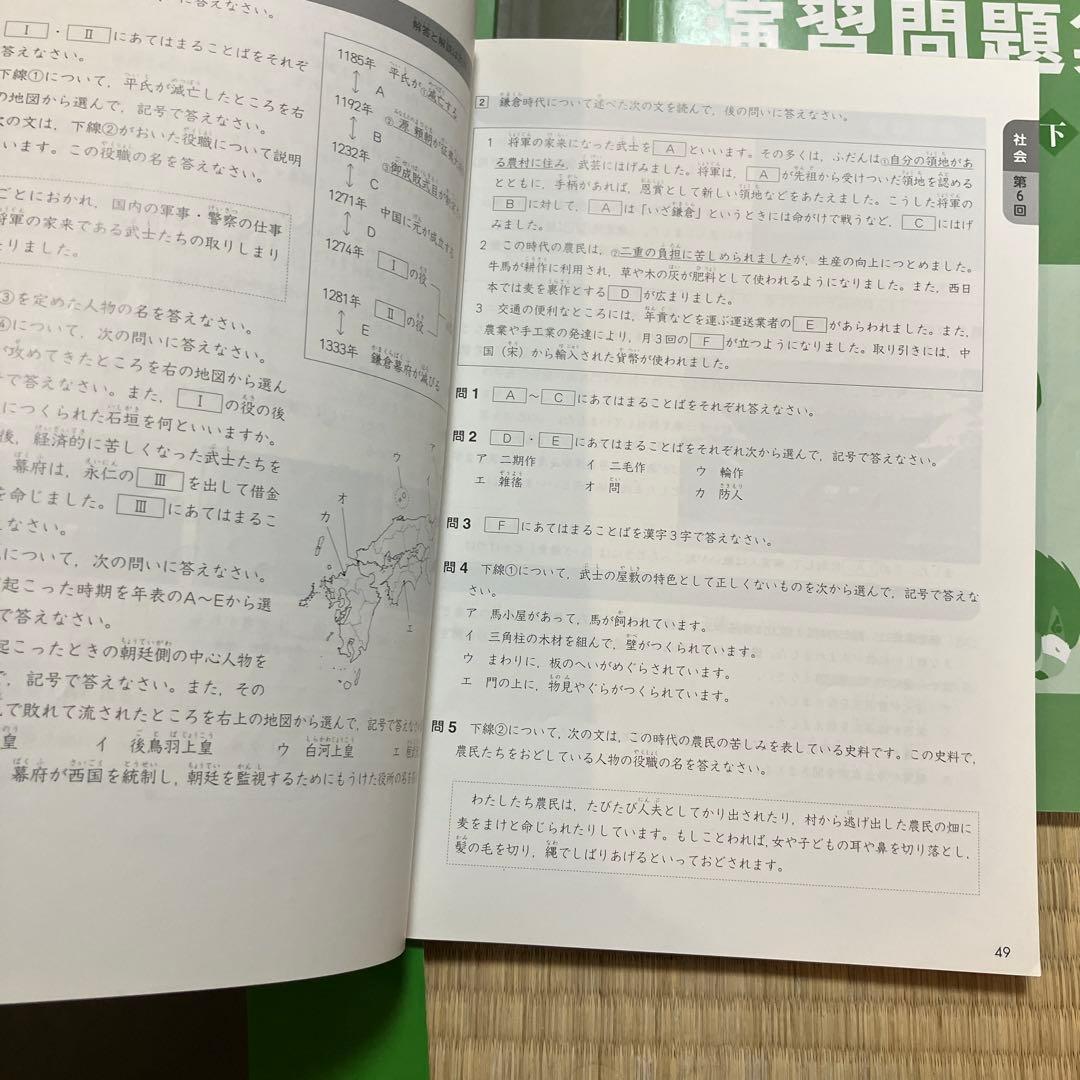 に答えなさい。
解答と解説は
Ⅰ・Ⅱにあてはまることばをそれぞ
答えなさい。
下線①について,平氏が滅亡したところを右
の地図から選んで,記号で答えなさい。
次の文は,下線②がおいた役職について説明
います。この役職の名を答えなさい。
ごとにおかれ,国内の軍事・警察の仕事
将軍の家来である武士たちの取りしまり
たりました。
③を定めた人物の名を答えなさい。
④について,次の問いに答えなさい。
が攻めてきたところを右の地図から選ん
号で答えなさい。また,Ⅰの役の後
につくられた石垣を何といいますか。
後,経済的に苦しくなった武士たちを
幕府は,永仁のⅢを出して借金
を命じました。Ⅲにあてはまるこ
えなさい。
について,次の問いに答えなさい。
起こった時期を年表のA~Eから選
で答えなさい。
起こったときの朝廷側の中心人物を
で,記号で答えなさい。また,その
で敗れて流されたところを右上の地図から選んで,記号で答えな
皇 イ 後鳥羽上皇 ウ 白河上皇 エ
幕府が西国を統制し,朝廷を監視するためにもうけた役所の名を
1185年 平氏が①滅亡する
A
1192年 ②源頼朝が征夷大
B
1232年 ③御成敗式目が制定
C
1271年 中国に元が成立する
D
1274年 Ⅰの役
1281年 Ⅱの役
E
1333年 鎌倉幕府が滅びる
ア
ウ
オ
カ
エ
演習問題集
下
社会 第6回
2 鎌倉時代について述べた次の文を読んで,後の問いに答えなさい。
1 将軍の家来になった武士をAといいます。その多くは,ふだんは①自分の領地があ
る農村に住み,武芸にはげみました。将軍は,Aが先祖から受けついだ領地を認める
とともに,手柄があれば,恩賞として新しい領地などをあたえました。こうした将軍の
Bに対して,Aは「いざ鎌倉」というときには命がけで戦うなど,Cにはげ
みました。
2 この時代の農民は,②二重の負担に苦しめられましたが,生産の向上につとめました。
牛馬が耕作に利用され,草や木の灰が肥料として使われるようになりました。また,西日
本では麦を裏作とするDが広まりました。
3 交通の便利なところには,年貢などを運ぶ運送業者のEがあらわれました。また,
農業や手工業の発達により,月3回のFが立つようになりました。取り引きには,中
国(宋)から輸入された貨幣が使われました。
問1 A~Cにあてはまることばをそれぞれ答えなさい。
問2 D・Eにあてはまることばをそれぞれ次から選んで,記号で答えなさい。
ア 二期作 イ 二毛作 ウ 輪作
エ 雑徭 オ 問 カ 防人
問3 Fにあてはまることばを漢字3字で答えなさい。
問4 下線①について,武士の屋敷の特色として正しくないものを次から選んで,記号で答えな
さい。
ア 馬小屋があって,馬が飼われています。
イ 三角柱の木材を組んで,壁がつくられています。
ウ まわりに,板のへいがめぐらされています。
エ 門の上に,物見やぐらがつくられています。
問5 下線②について,次の文は,この時代の農民の苦しみを表している史料です。この史料で,
農民たちをおどしている人物の役職の名を答えなさい。
わたしたち農民は,たびたび人夫としてかり出されたり,村から逃げ出した農民の畑に
麦をまけと命じられたりしています。もしことわれば,女や子どもの耳や鼻を切り落とし,
髪の毛を切り,縄でしばりあげるといっておどされます。
49